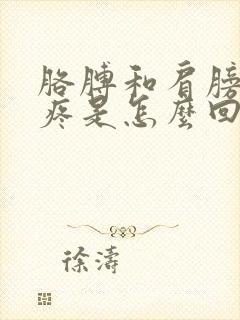 胳膊和肩膀
疼是怎麼回
徐濤